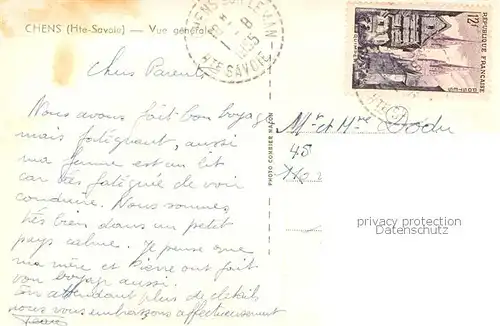 CHENS (Hte-Savoie) — Vue générale
CHENS SUR LEMAN
8
1955
HTE SAVOIE
12F
RÉPUBLIQUE FRANÇAISE
Chers Parents
Nous avons fait bon voyage
mais fatiguant, aussi
ma femme est au lit
car très fatiguée de voir
conduire. Nous sommes
très bien dans un petit
pays calme. Je pense que
ma mère et Pierre ont fait
bon voyage aussi.
En attendant plus de détails
nous vous embrassons affectueusement
Mr et Mme Dodu
45
PHOTO COMBIER MACON
privacy protection
Datenschutz